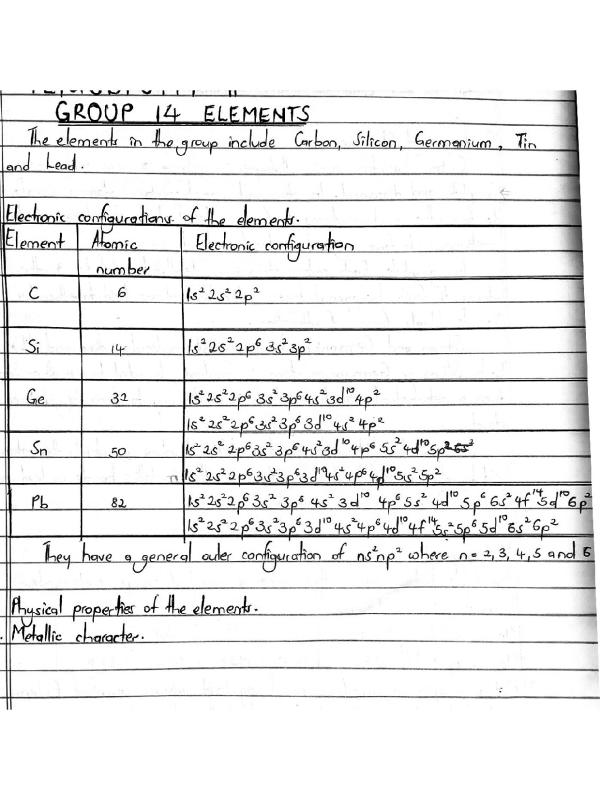 GROUP 14 ELEMENTS
The elements in the group include Carbon, Silicon, Germanium, Tin
and Lead.
Electronic configurations of the elements.
Element Atomic Electronic configuration
number
C 6 1s² 2s² 2p²
Si 14 1s² 2s² 2p⁶ 3s² 3p²
Ge 32 1s² 2s² 2p⁶ 3s² 3p⁶ 4s² 3d¹⁰ 4p²
1s² 2s² 2p⁶ 3s² 3p⁶ 3d¹⁰ 4s² 4p²
Sn 50 1s² 2s² 2p⁶ 3s² 3p⁶ 4s² 3d¹⁰ 4p⁶ 5s² 4d¹⁰ 5p²
1s² 2s² 2p⁶ 3s² 3p⁶ 3d¹⁰ 4s² 4p⁶ 4d¹⁰ 5s² 5p²
Pb 82 1s² 2s² 2p⁶ 3s² 3p⁶ 4s² 3d¹⁰ 4p⁶ 5s² 4d¹⁰ 5p⁶ 6s² 4f¹⁴ 5d¹⁰ 6p²
1s² 2s² 2p⁶ 3s² 3p⁶ 3d¹⁰ 4s² 4p⁶ 4d¹⁰ 4f¹⁴ 5s² 5p⁶ 5d¹⁰ 6s² 6p²
They have a general outer configuration of ns²np² where n = 2, 3, 4, 5 and 6
Physical properties of the elements.
Metallic character.